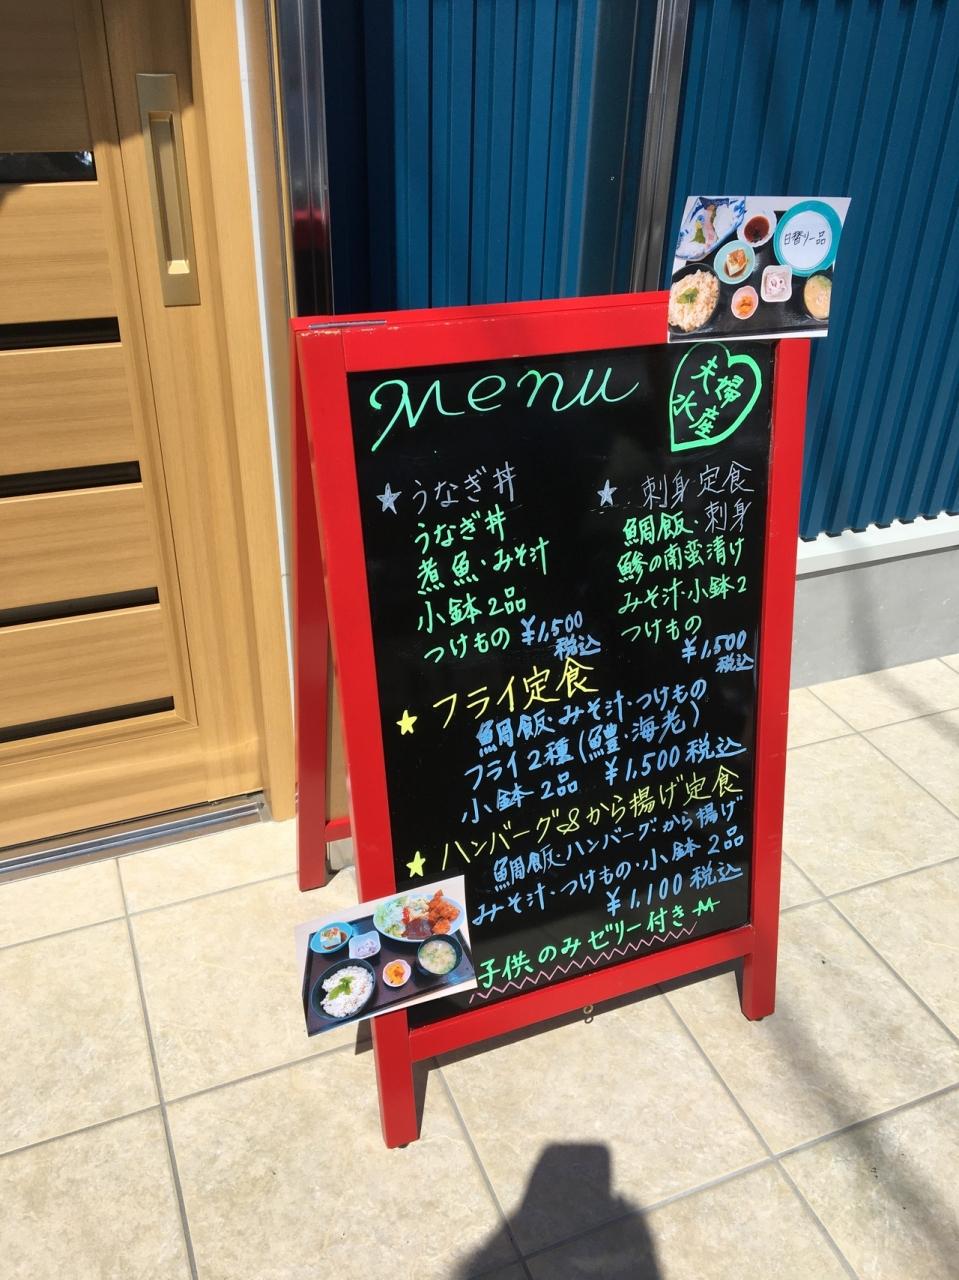 日替り一品
Menu
夫婦
水産
☆うなぎ丼
うなぎ丼
煮魚・みそ汁
小鉢2品
つけもの ¥1,500
税込
☆刺身定食
鯛飯・刺身
鯵の南蛮漬け
みそ汁・小鉢2
つけもの
¥1,500
税込
☆フライ定食
鯛飯・みそ汁・つけもの
フライ2種(鱧・海老)
小鉢2品 ¥1,500税込
☆ハンバーグ&から揚げ定食
鯛飯・ハンバーグ・から揚げ
みそ汁・つけもの・小鉢2品
¥1,100税込
子供のみゼリー付き